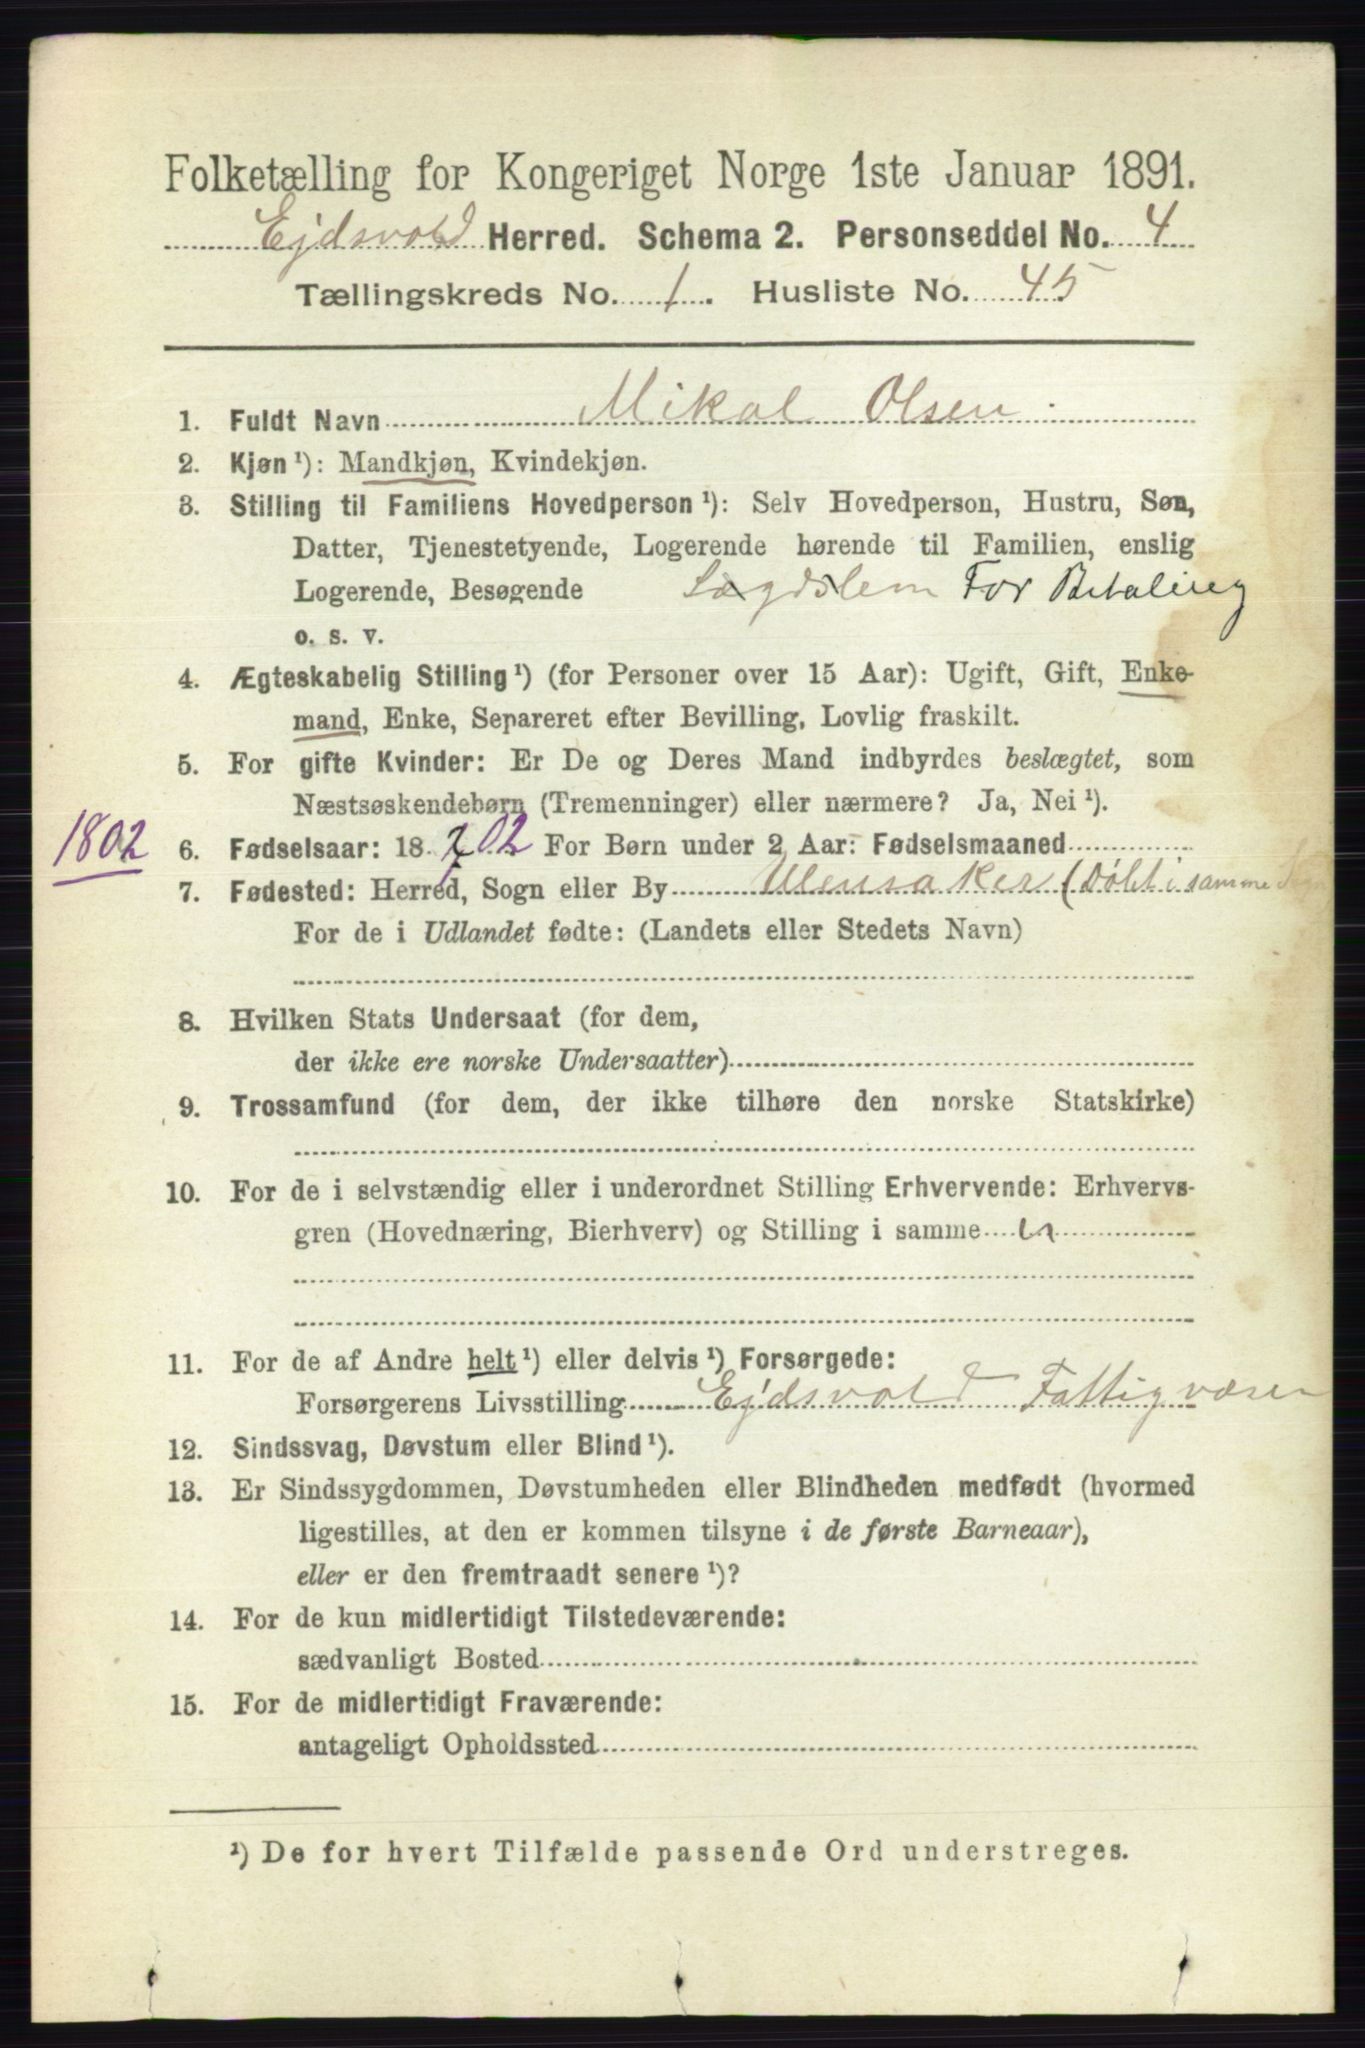 Folketælling for Kongeriget Norge 1ste Januar 1891.
Ejdsvold Herred. Schema 2. Personseddel No. 4
Tællingskreds No. 1. Husliste No. 45
1. Fuldt Navn Mikal Olsen
2. Kjøn ¹): Mandkjøn, Kvindekjøn.
3. Stilling til Familiens Hovedperson ¹): Selv Hovedperson, Hustru, Søn,
Datter, Tjenestetyende, Logerende hørende til Familien, enslig
Logerende, Besøgende Lægdslem For Betaling
o. s. v.
4. Ægteskabelig Stilling ¹) (for Personer over 15 Aar): Ugift, Gift, Enke-
mand, Enke, Separeret efter Bevilling, Lovlig fraskilt.
5. For gifte Kvinder: Er De og Deres Mand indbyrdes beslægtet, som
Næstsøskendebørn (Tremenninger) eller nærmere? Ja, Nei ¹).
1802 6. Fødselsaar: 18 02 For Børn under 2 Aar: Fødselsmaaned
7. Fødested: Herred, Sogn eller By Ulensaker (Døbt i samme Sogn
For de i Udlandet fødte: (Landets eller Stedets Navn)
8. Hvilken Stats Undersaat (for dem,
der ikke ere norske Undersaatter)
9. Trossamfund (for dem, der ikke tilhøre den norske Statskirke)
10. For de i selvstændig eller i underordnet Stilling Erhvervende: Erhvervs-
gren (Hovednæring, Bierhverv) og Stilling i samme
11. For de af Andre helt ¹) eller delvis ¹) Forsørgede:
Forsørgerens Livsstilling Ejdsvold Fattigvæsen
12. Sindssvag, Døvstum eller Blind ¹).
13. Er Sindssygdommen, Døvstumheden eller Blindheden medfødt (hvormed
ligestilles, at den er kommen tilsyne i de første Barneaar),
eller er den fremtraadt senere ¹)?
14. For de kun midlertidigt Tilstedeværende:
sædvanligt Bosted
15. For de midlertidigt Fraværende:
antageligt Opholdssted
¹) De for hvert Tilfælde passende Ord understreges.